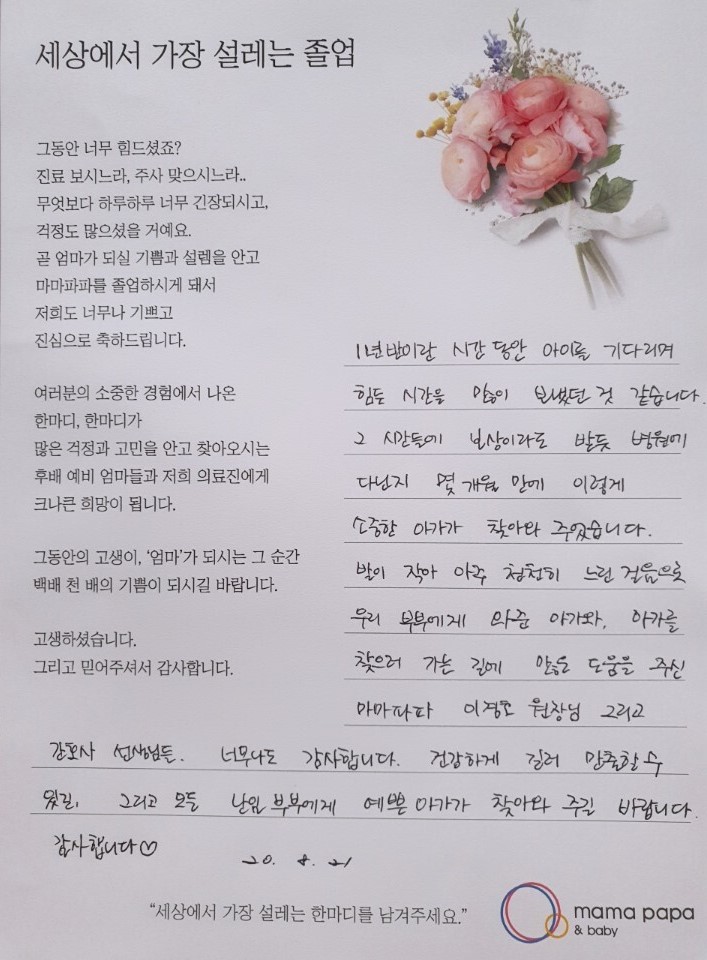 세상에서 가장 설레는 졸업
그동안 너무 힘드셨죠?
진료 보시느라, 주사 맞으시느라..
무엇보다 하루하루 너무 긴장되시고,
걱정도 많으셨을 거예요.
곧 엄마가 되실 기쁨과 설렘을 안고
마마파파를 졸업하시게 돼서
저희도 너무나 기쁘고
진심으로 축하드립니다.
여러분의 소중한 경험에서 나온
한마디, 한마디가
많은 걱정과 고민을 안고 찾아오시는
후배 예비 엄마들과 저희 의료진에게
크나큰 희망이 됩니다.
그동안의 고생이, '엄마'가 되시는 그 순간
백배 천 배의 기쁨이 되시길 바랍니다.
고생하셨습니다.
그리고 믿어주셔서 감사합니다.
11년반이란 시간 동안 아이를 기다리며
힘든 시간을 많이 보냈던 것 같습니다.
그 시간들에 보상이라도 받듯 병원에
다닌지 몇 개월 만에 이렇게
소중한 아가가 찾아와 주었습니다.
발이 작아 아주 천천히 느린 걸음으로
우리 부부에게 와준 아가와, 아가를
찾으러 가는 길에 많은 도움을 주신
마마파파 이경호 원장님 그리고
간호사 선생님들. 너무나도 감사합니다. 건강하게 길러 만출할 수
있길, 그리고 모든 난임 부부에게 예쁜 아가가 찾아와 주길 바랍니다.
감사합니다♡ 20. 8. 21
"세상에서 가장 설레는 한마디를 남겨주세요."
mama papa
& baby